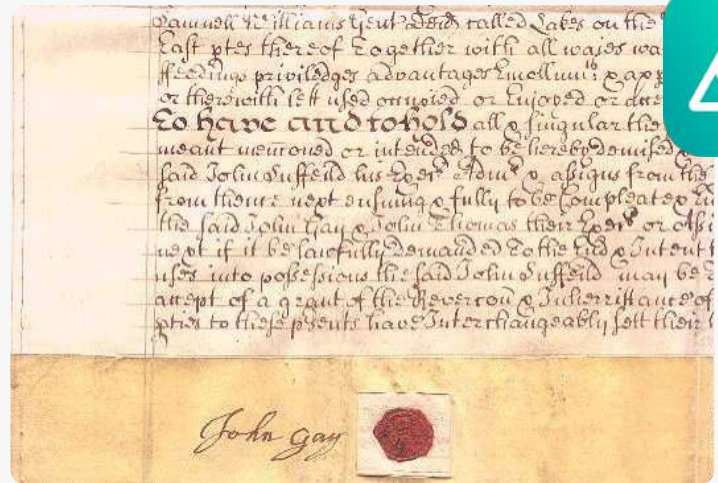 Samuell Williams Gent called Lakes on the
East ptes thereof Together with all waies wa
ffeedings priviledges advantages Emollum.ts & app
or therewith lett used occupied or Enjoyed or
To have and to hold all & singular the
meant menconed or intended to be hereby demised
said John Suffeild his Exec.rs Adm.rs & assigns from the
from thence next ensuing & fully to be Compleate &
the said John Gay & John Thomas their Exec.rs or Assi
next if it be lawfully demanded To the End & Intent t
uses into possession the said John Suffeild may be
accept of a grant of the Revercon & Inherrittance of
pties to these psents have Interchangeably sett their
John Gay